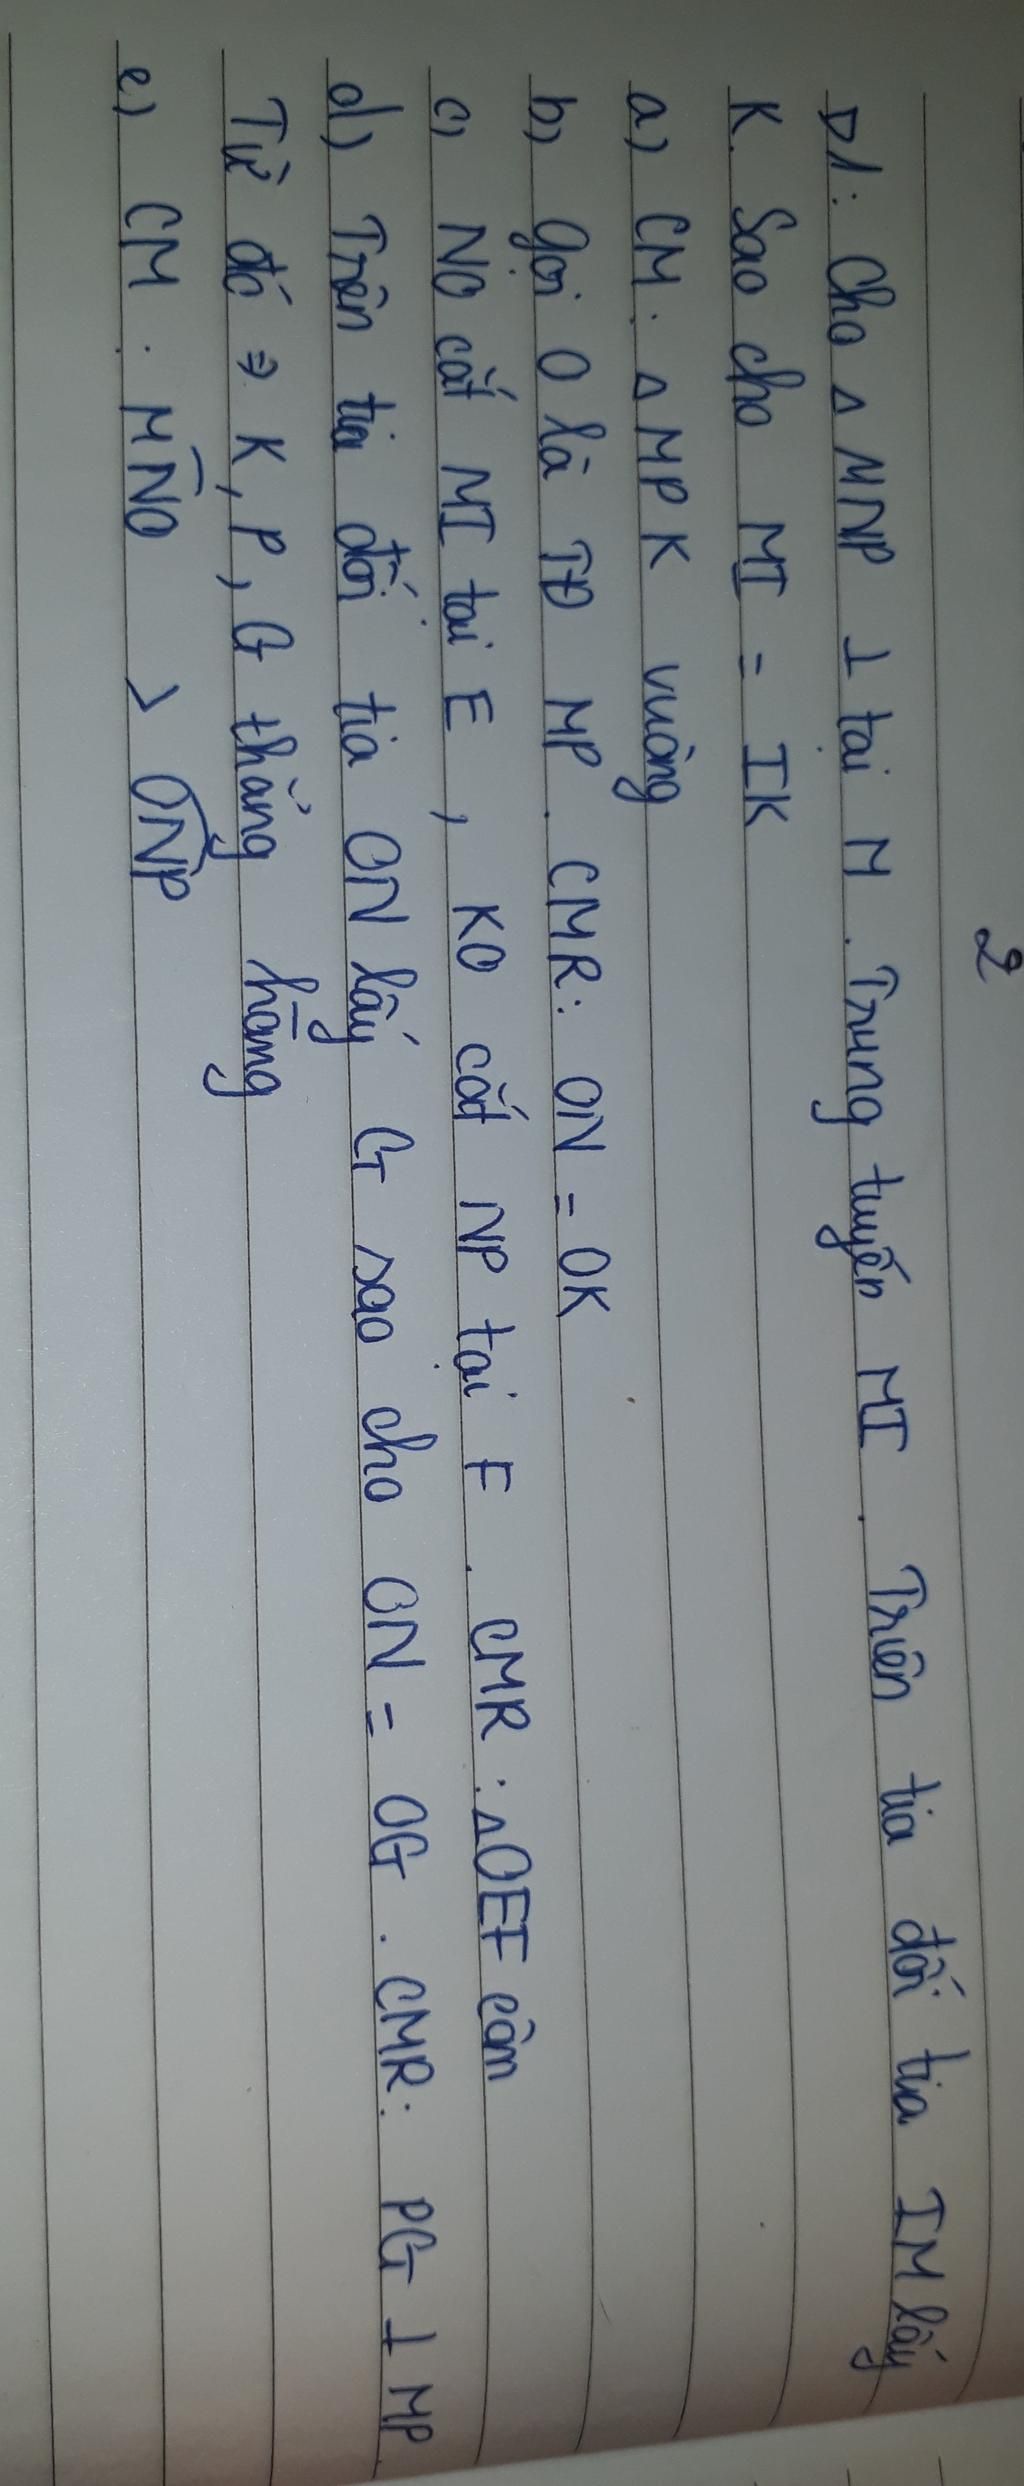 2
D1: Cho Δ MNP ⊥ tại M. Trung tuyến MI. Trên tia đối tia IM lấy
K. Sao cho MI = IK
a) CM: Δ MPK vuông
b) Gọi O là TĐ MP. CMR: ON = OK
c) NO cắt MI tại E, KO cắt NP tại F. CMR: ΔOEF cân
d) Trên tia đối tia ON lấy G sao cho ON = OG. CMR: PG ⊥ MP
Từ đó ⇒ K, P, G thẳng hàng
e) CM: MNO > ONP